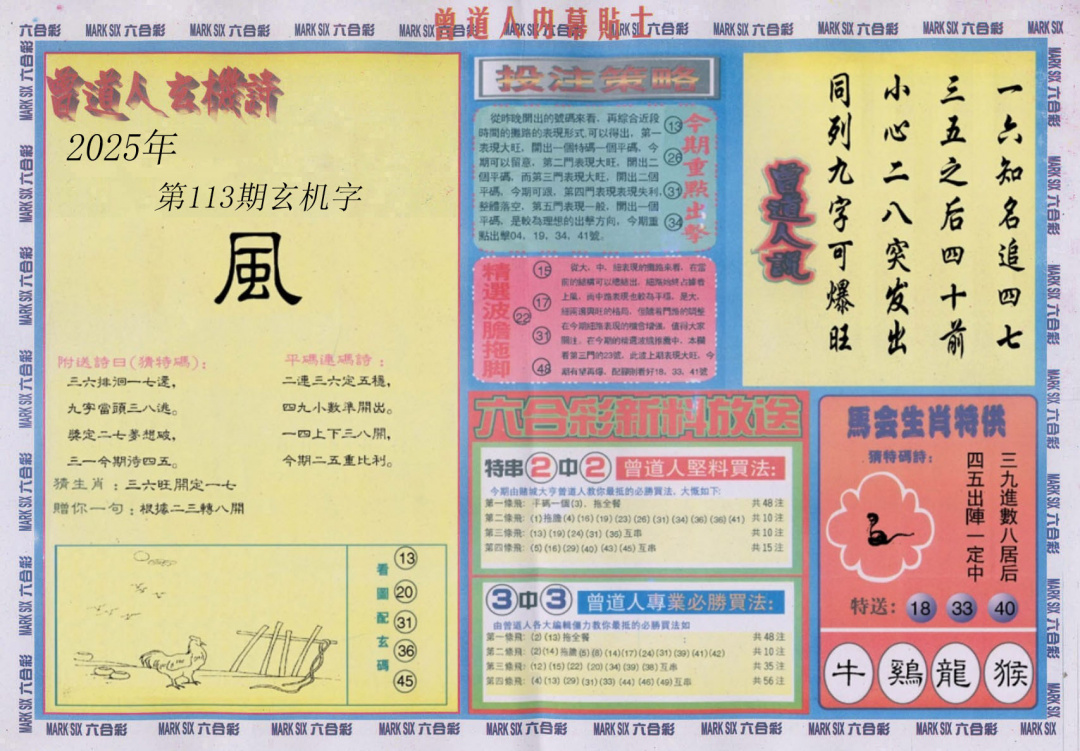 曾道人内幕貼士
六合彩 MARK SIX 六合彩 MARK SIX 六合彩 MARK SIX 六合彩
曾道人玄機詩
2025年
第113期玄机字
風
附送詩曰(猜特碼):
三六排洄一七還,
九字當頭三八逃。
獎定二七夢想破,
三一今期待四五。
平碼連碼詩:
二連三六定五穩,
四九小數準開出。
一四上下三八開,
今期二五重比利。
猜生肖:三六旺開定一七
贈你一句:根據二三轉八開
看圖配玄碼
13
20
31
36
45
投注策略
從昨晚開出的號碼來看,再綜合近段
時間的攤路的表現形式,可以得出,第一
表現大旺,開出一個特碼一個平碼,今
期可以留意,第二門表現大旺,開出二
個平碼,而第三門表現大旺,開出二個
平碼,今期可跟,第四門表現表現失利,
整體落空,第五門表現一般,開出一個
平碼,是較為理想的出擊方向,今期重
點出擊04,19,34,41號。
今期重點出擊
13
26
31
34
精選波膽拖脚
15
17
22
31
48
從大、中、細表現的攤路來看,在當
關注,在今期的精選波膽推薦中,本欄
看第三門的23號,此波上期表現大旺,今
期有望再爆,配腳則看好18、33、41號
一六知名追四七
三五之后四十前
小心二八突发出
同列九字可爆旺
曾道人説
六合彩新料放送
特串2中2 曾道人堅料買法:
今期由賭城大亨曾道人教你最抵的必勝買法,大慨如下:
第一條飛: 平碼一個(3),拖全餐 共48注
第二條飛: (1)拖膽(4)(16)(19)(23)(26)(31)(34)(36)(36)(41) 共10注
第三條飛: (13)(19)(24)(31)(36)互串 共10注
第四條飛: (5)(16)(29)(40)(43)(45)互串 共15注
3中3 曾道人專業必勝買法:
由曾道人各大編輯傾力教你最抵的必勝買法如
第一條飛: (2)(13)拖全餐 : 共48注
第二條飛: (2)(14)拖膽(5)(8)(14)(17)(24)(31)(39)(41)(42) 共10注
第三條飛: (12)(15)(22)(20)(34)(39)(38)互串 共35注
第四條飛: (4)(13)(29)(31)(33)(44)(46)(49)互串 共56注
馬会生肖特供
猜特碼詩:
三九進數八居后
四五出陣一定中
特送: 18 33 40
牛 鷄 龍 猴
MARK SIX 六合彩 MARK SIX 六合彩 MARK SIX 六合彩